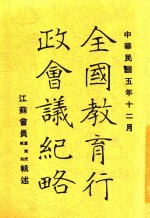 中華民國五年十二月
全國教育行
政會議紀略
江蘇會員
輯述